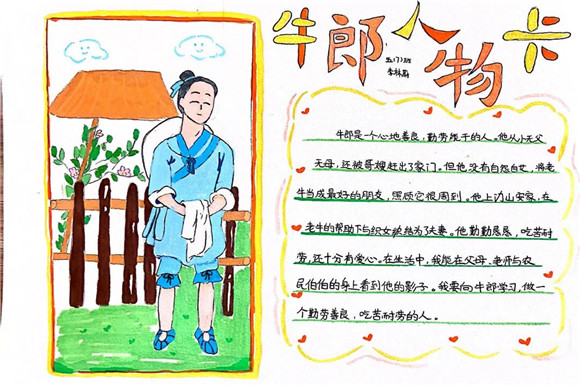 牛郎人物卡
五(7)班
李林蔚
牛郎是一个心地善良,勤劳能干的人。他从小无父
无母,还被哥嫂赶出了家门。但他没有自怨自艾,将老
牛当成最好的朋友,照顾它很周到。他上边山安家,在
老牛的帮助下与织女被结为了夫妻。他勤勤恳恳,吃苦耐
劳,还十分有爱心。在生活中,我能在父母、老师与农
民伯伯的身上看到他的影子。我要向牛郎学习,做一
个勤劳善良,吃苦耐劳的人。